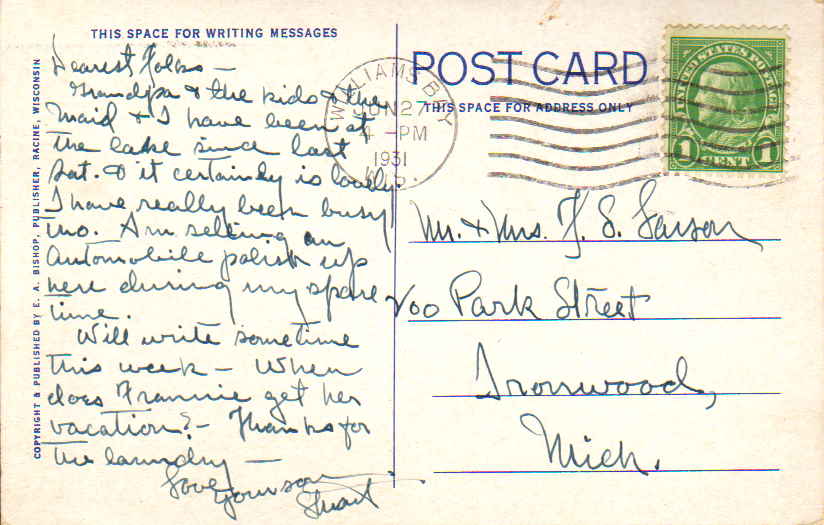 THIS SPACE FOR WRITING MESSAGES
Dearest Folks —
Grandpa & the kids & the
maid & I have been at
the lake since last
Sat. & it certainly is lovely.
I have really been busy
too. Am selling an
automobile polish up
here during my spare
time.
Will write sometime
this week — When
does Frannie get her
vacation? — Thanks for
the laundry —
Love
Your son
Stuart
COPYRIGHT & PUBLISHED BY E. A. BISHOP, PUBLISHER, RACINE, WISCONSIN
POST CARD
THIS SPACE FOR ADDRESS ONLY
WILLIAMS BAY
JUN 27
4 -PM
1931
WIS.
UNITED STATES POSTAGE
1 CENT 1
Mr. & Mrs. F. S. Larson
700 Park Street
Ironwood,
Mich.